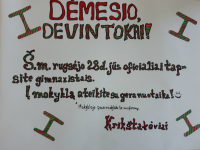 DĖMESIO,
DEVINTOKAI!
Š.m. rugsėjo 28d. jūs oficialiai tap-
site gimnazistais.
Į mokyklą ateikite su gera nuotaika! ☺
Krikštatėviai